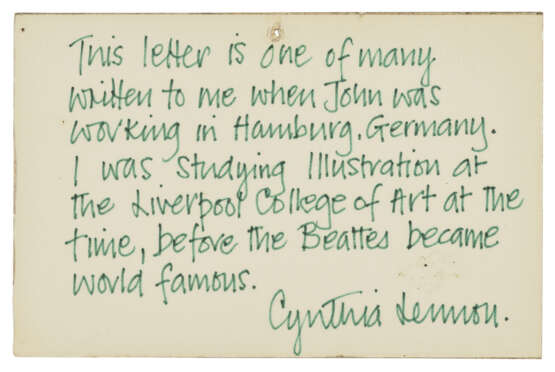 This letter is one of many
written to me when John was
working in Hamburg, Germany.
I was studying Illustration at
the Liverpool College of Art at the
time, before the Beatles became
world famous.
Cynthia Lennon.